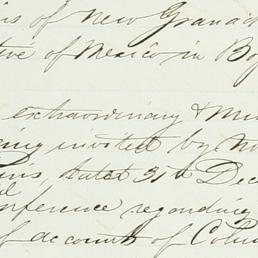 is of New Granad
tive of Mexico in Bog
extraordinary & Min
ing invited by No
dated 31st Dec
onference regarding
of accounts of Colu